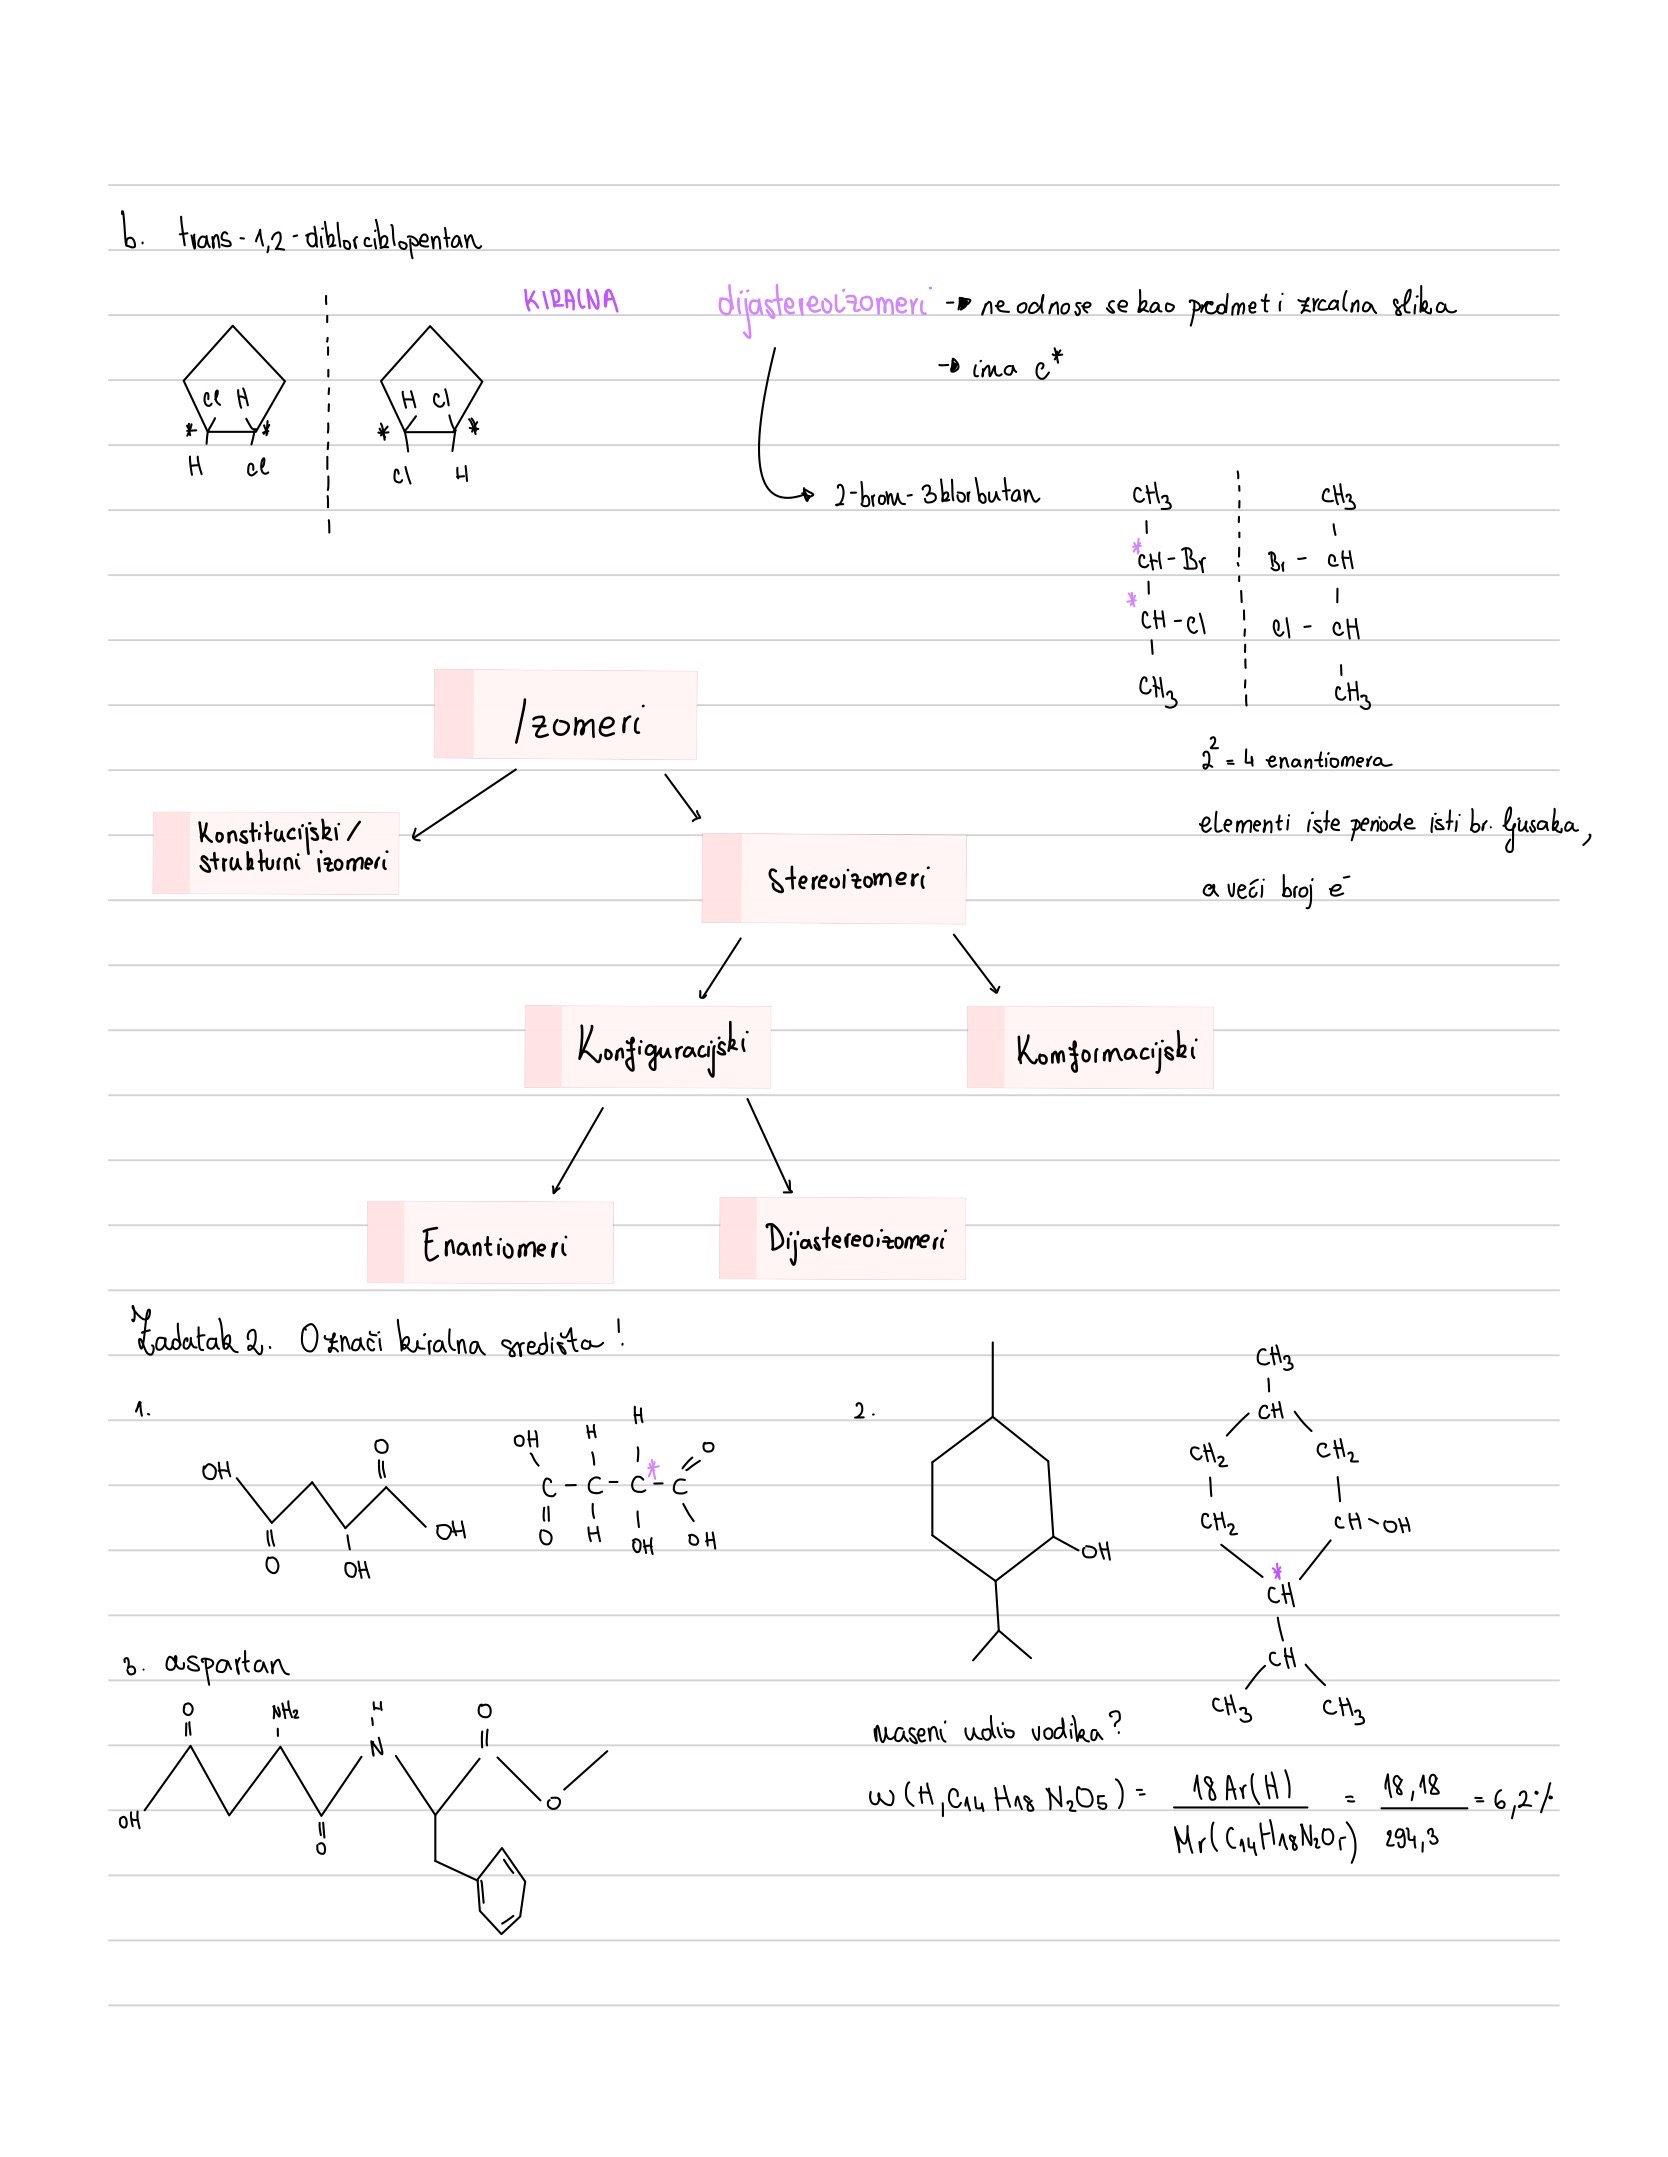 b. trans-1,2-diklorciklopentan
KIRALNA
dijastereoizomeri → ne odnose se kao predmet i zrcalna slika
→ ima C*
Cl H
* *
H Cl
H Cl
* *
Cl H
2-brom-3klorbutan
CH3
*CH-Br
*CH-Cl
CH3
CH3
Br-CH
Cl-CH
CH3
2² = 4 enantiomera
elementi iste periode isti br. ljusaka,
a veći broj e⁻
Izomeri
Konstitucijski /
strukturni izomeri
Stereoizomeri
Konfiguracijski
Komformacijski
Enantiomeri
Dijastereoizomeri
Zadatak 2. Označi kiralna središta!
1.
OH
O
O
OH
OH
OH H H O
C - C - C* - C
O H OH OH
2.
OH
CH3
CH
CH2 CH2
CH2 CH-OH
*
CH
CH
CH3 CH3
3. aspartan
O NH2 H O
N
OH O O
maseni udio vodika?
w(H, C14H18N2O5) = 18 Ar(H) / Mr(C14H18N2O5) = 18,18 / 294,3 = 6,2%